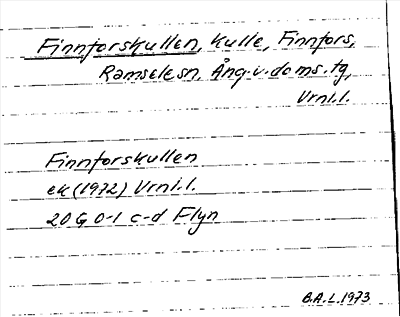 Finnforskullen, kulle, Finnfors,
Ramsele sn, Ång.v. doms. tg,
Vrnl.l.
Finnforskullen
ek (1972) Vrnl.l.
20G 0-1 c-d Flyn
B.A.L. 1973